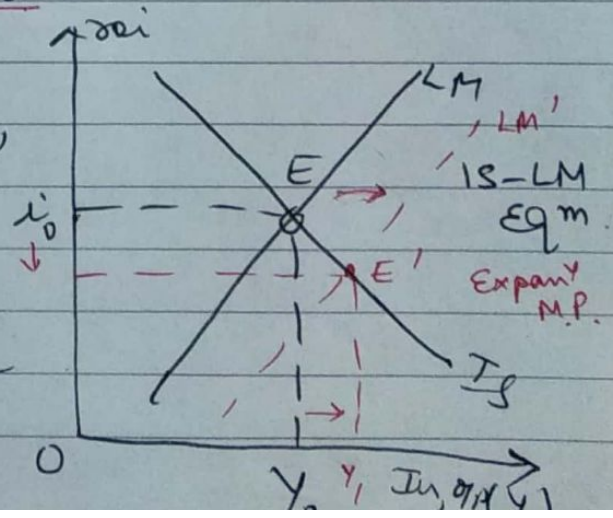 roi
LM
LM'
E
IS-LM
Eqm.
i₀
E'
Expanʸ
M.P.
IS
O
Y₀
Y₁
(Y)